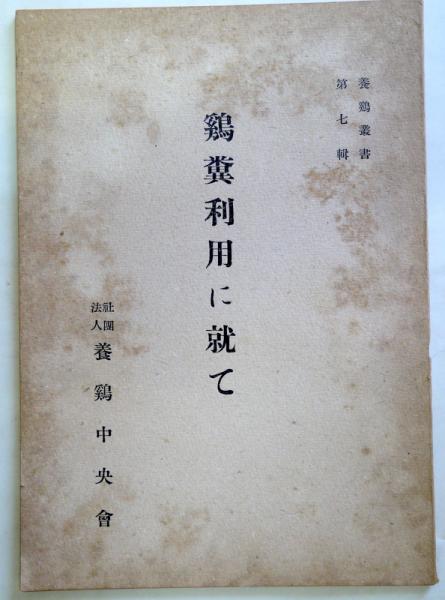 養鷄叢書
第七輯
鷄糞利用に就て
社團法人 養鷄中央會